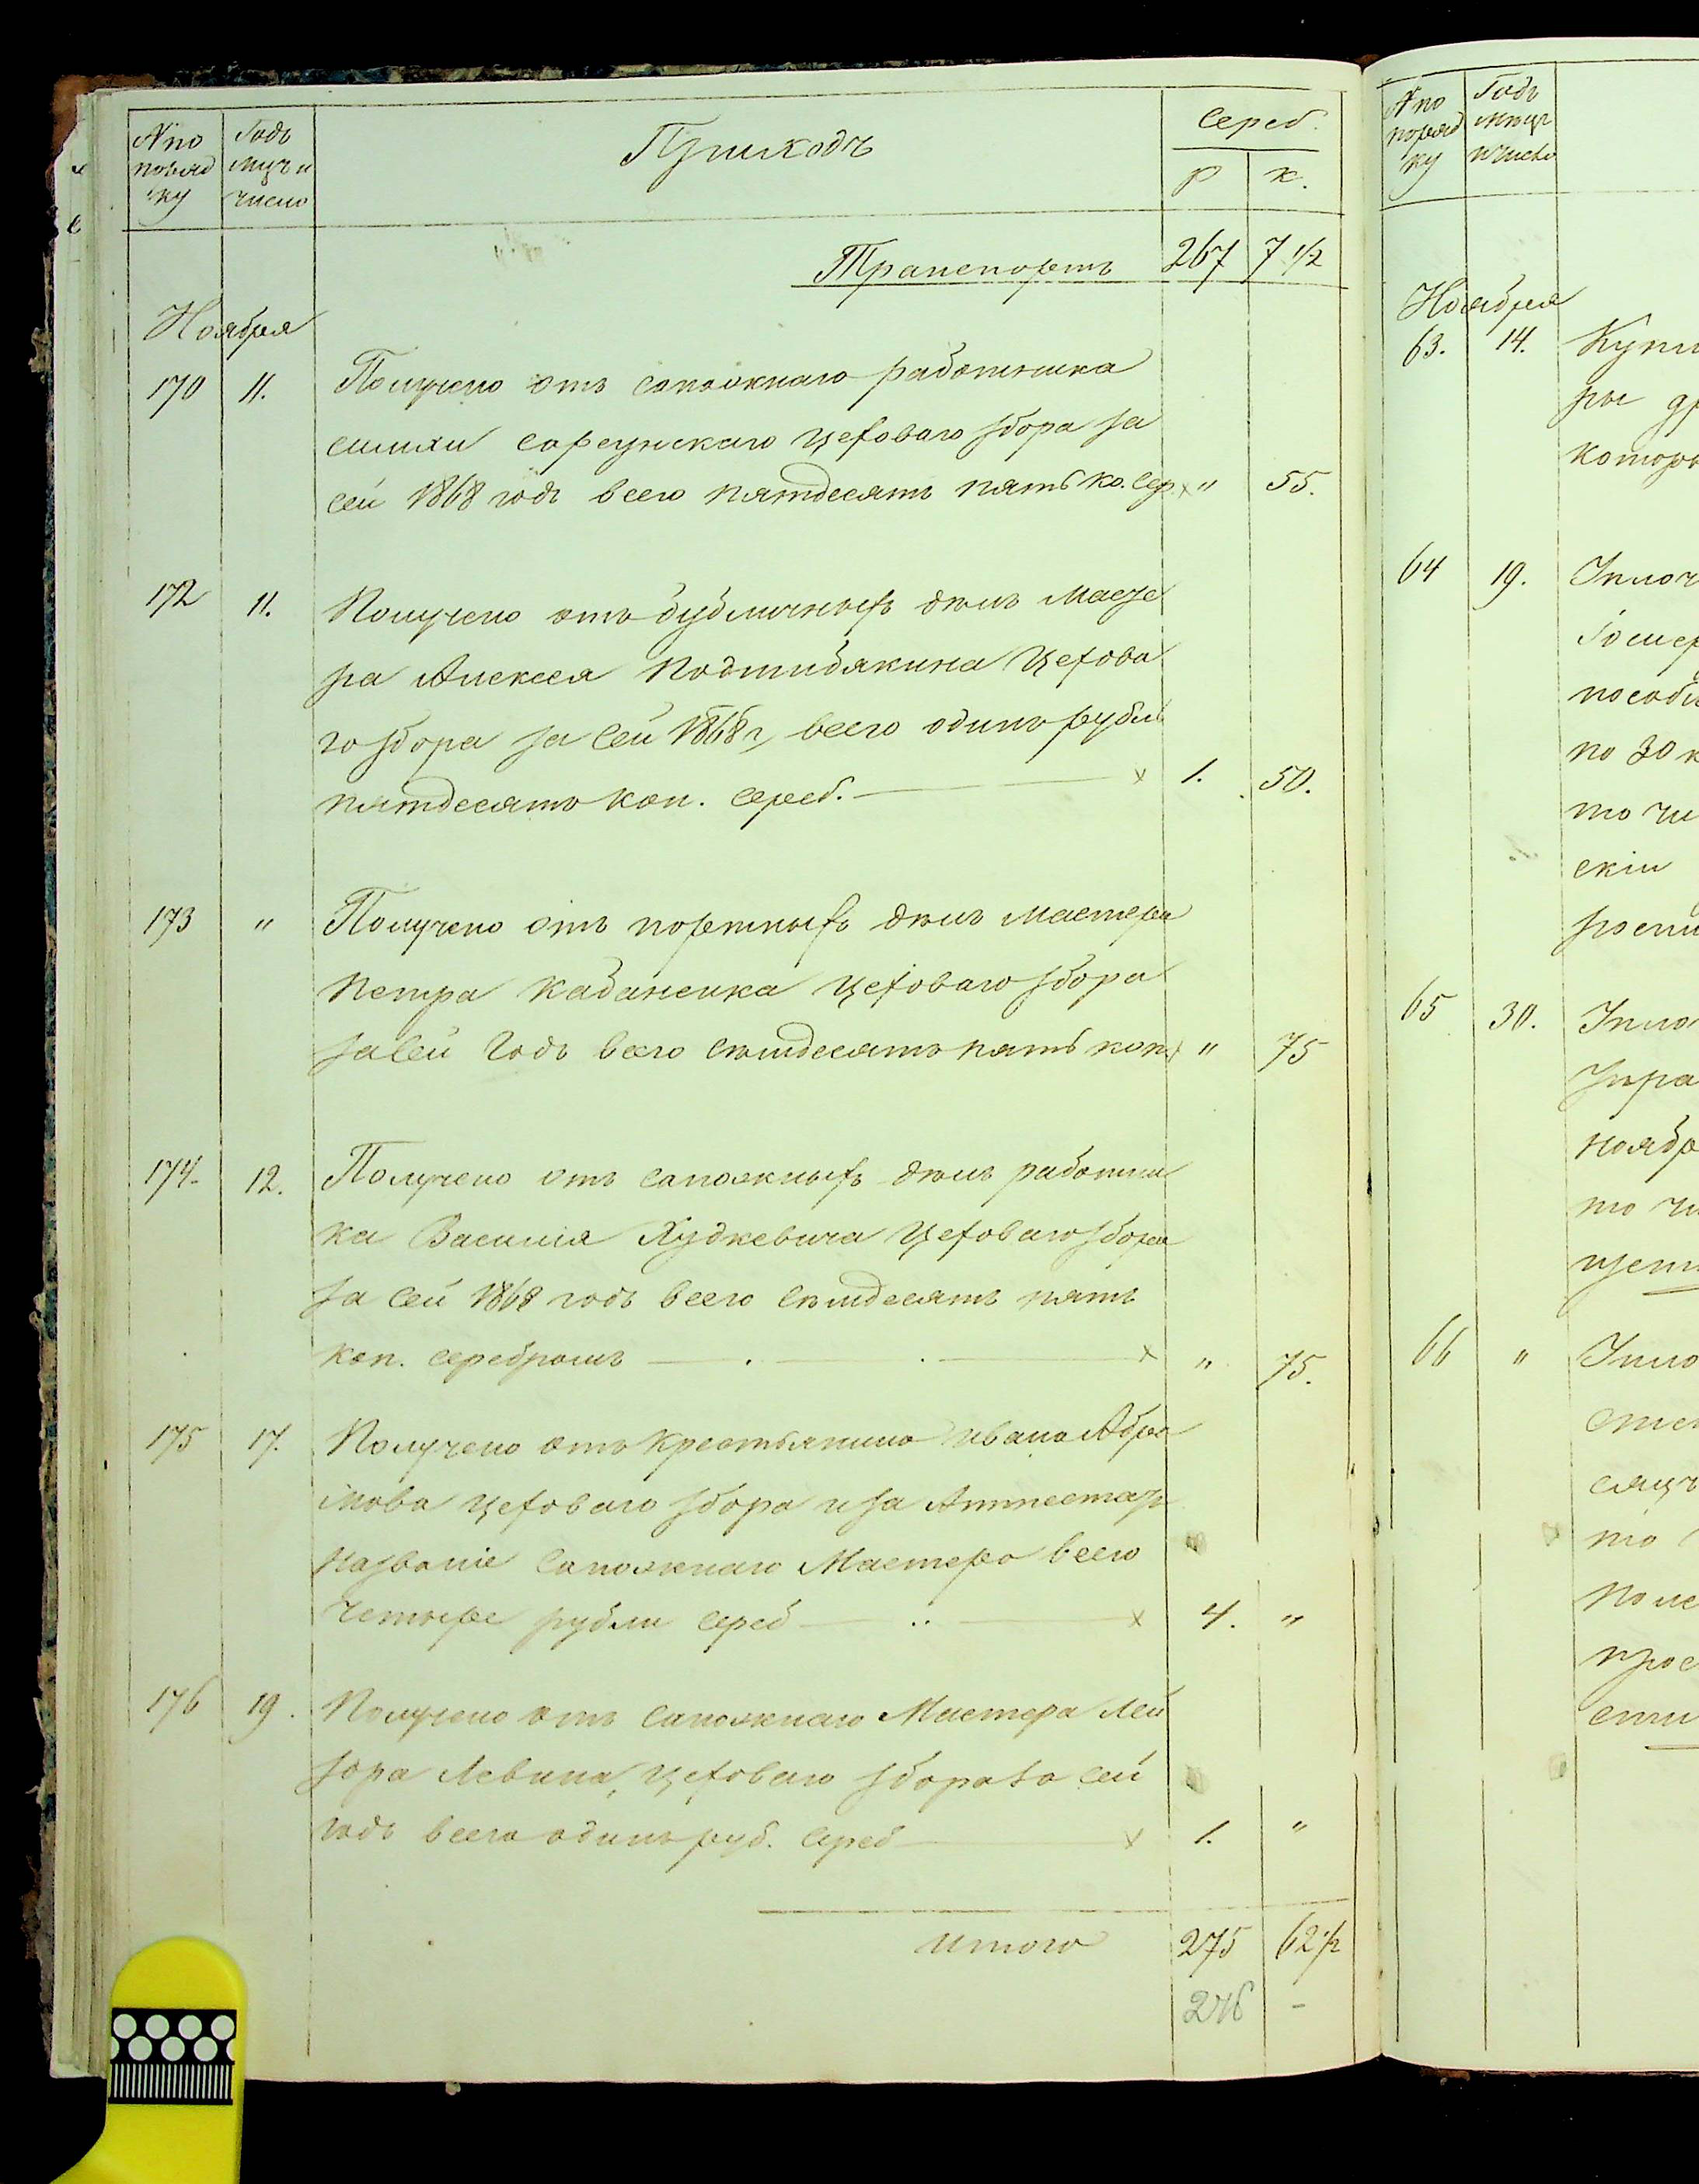 № по поряд ку
Годъ мцъ и число
Приходъ
Сереб.
р к.
Транспортъ 267 7 1/2
Ноября
170 11. Получено отъ сапожнаго работника
цехового збора за
сей 1868 годъ всего пятдесятъ пять ко. сер. x " 55.
172 11. Получено отъ бубличныхъ делъ масте
ра Алексея Подшибякина Цехова
го збора за сей 1868 г, всего одинъ рубль
пятдесятъ коп. сереб. x 1. 50.
173 " Получено отъ портныхъ делъ мастера
Петра Кабаненка цеховаго збора
за сей годъ всего семдесятъ пять коп. x " 75
174. 12. Получено отъ сапожныхъ делъ работни
ка Василія Худкевича Цеховаго збора
за сей 1868 годъ всего семдесятъ пять
коп. серебромъ x " 75.
175 17. Получено отъ Крестьянина Ивана Абра
мова цеховаго збора и за Аттестатъ
названіе сапожнаго Мастера всего
четыре рубли сереб x 4. "
176 19. Получено отъ сапожнаго Мастера Лей
зора Левина, Цеховаго збора за сей
годъ всего одинъ руб. сереб x 1. "
итого 275 62 1/2
276 -
№ по поряд ку
Годъ мцъ и число
Ноября
63. 14. Купл
ры др
которы
64 19. Уплоч
пособі
по 30 к
то чи
скій
65 30. Упло
Упра
ноябр
то чи
66 " Упло
сяцъ
то
поле